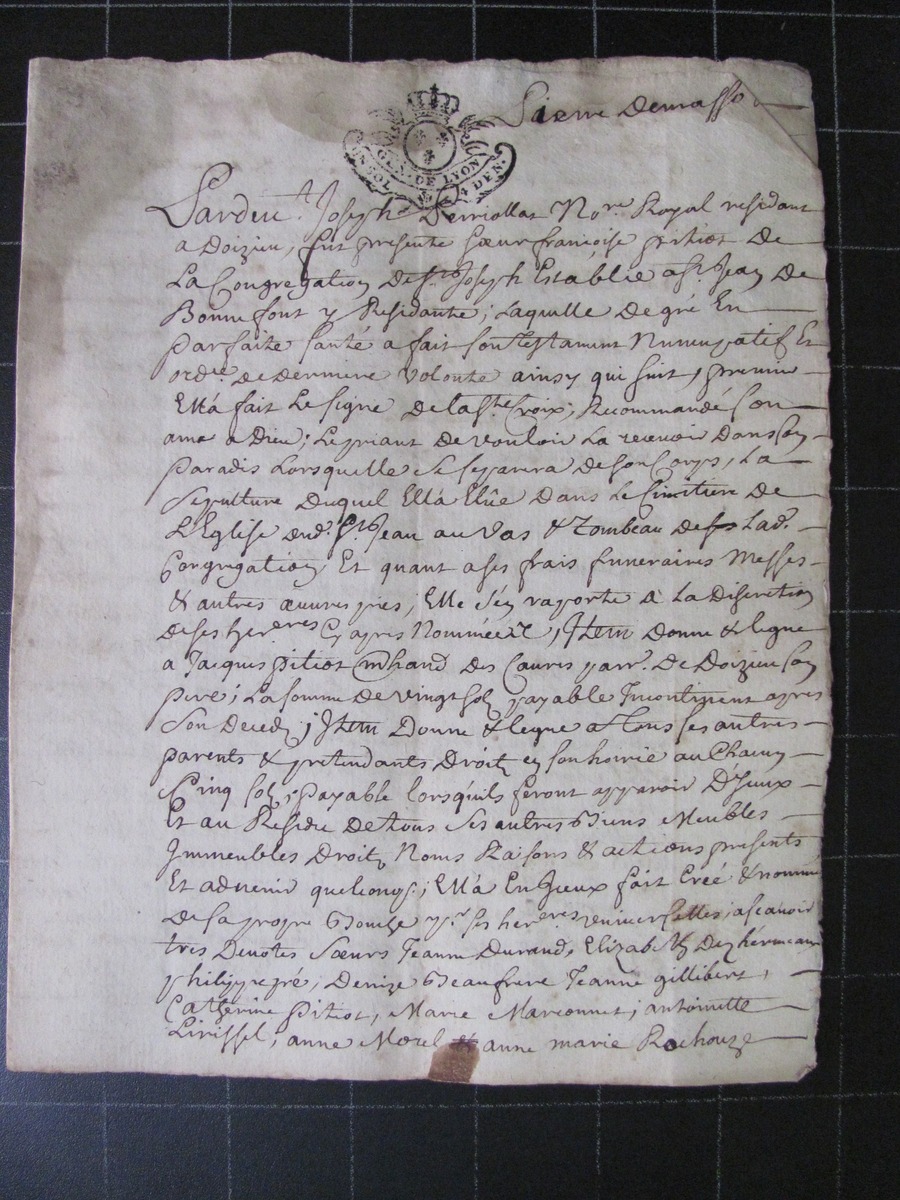 Pierre Demasso
GEN. DE LYON
UN SOL 4 DEN.
Pardev.t Joseph Derriollat No.re Royal residant
a Doizieu, fut presente Sœur francoise pitiot De
La Congregation De St. Joseph Establie a St. Jean De
Bonnefont y Residante; Laquelle De gré En
parfaite santé a fait son Testament Nuncupatif Et
ord.e de derniere Volonté ainsy qui suit, premier
Ell'a fait Le signe de la Ste. Croix; Recommandé Son
ame a Dieu; Le priant de vouloir La recevoir Dans son
paradis Lorsquelle se separera de son Corps, La
sepulture duquel Ell'a Elûe Dans Le Cimitiere De
L'Eglise dud. St. Jean au Vas & Tombeau de Lad.
Congregation, Et quant a ses frais funeraires Messes
& autres œuvres pies, Elle s'en raporte a La Discretion
de ses her.eres Cy apres Nommées, Item donne & legue
a Jacques pitiot mchand des Caures parr. De Doizieu son
pere; La somme de vingt sols payable Incontinent apres
son Decedz; Item Donne & legue a tous ses autres
parents & pretendants Droitz en son hoirie au Chacun
Cinq sols, payable lorsqu'ils feront apparoir D'Iceux
Et au Residu De tous ses autres Biens Meubles
Immeubles Droitz Noms Raisons & actions presents
Et advenir quelconqs.; Ell'a En Iceux fait Créé & nommé
De sa propre Bouche pr. ses her.eres universelles, a scavoir
tres Devotes Sœurs Jeanne Durand, Elizabeth Dezhermeaux
philippe pré, Denize Beaufrere Jeanne gillibert,
Catherine Pitiot, Marie Marconnet; antoinette
Lirissel; anne Morel anne marie Rochouze